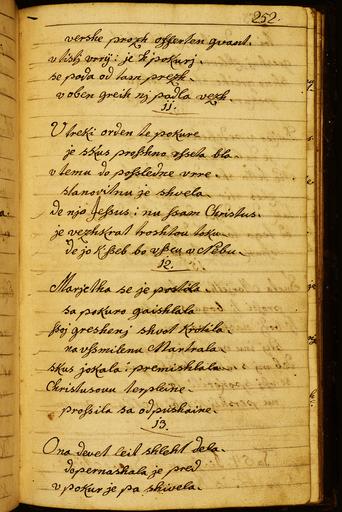 252.
verske prozh offerten gvant.
v tisti vrrij: je k' pokurj.
se poda od tam prezk.
v oben greih nj padla vezk.
11.
V treki orden te pokure
je skus prosshno vsseta bla.
v temu do possledne vrre.
stanovitnu je shvela
de njo Jessus: nu ssam Christus.
je vezhkrat troshtou taku.
de jo k'sseb bo vsseu v Nebu.
12.
Marjetka se je postila
sa pokuro gaishlala
ssoj greshenj shvot krotila.
na vssmilena Martrala
skus jokala: premishlala.
Christusovu terpleine.
prossila sa odpushaine.
13.
Ona devet leit shleht dela.
dopernashala je pred
v pokur je pa shivela.